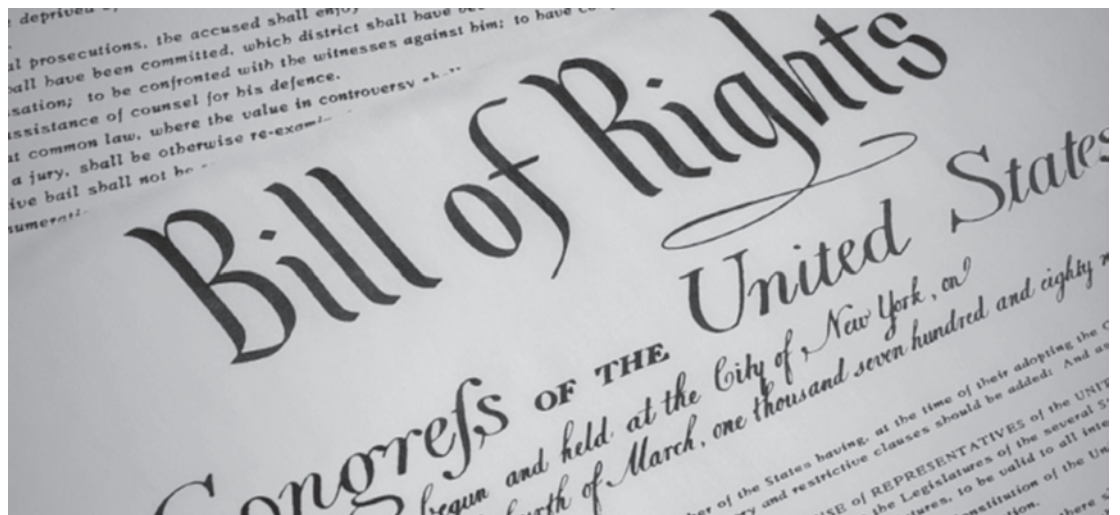 deprived
prosecutions, the accused shall enjoy
have been committed, which district shall have
to be confronted with the witnesses against him; to have
of counsel for his defence.
common law, where the value in controversy
a jury, shall be otherwise
bail shall not be
Bill of Rights
Congreſs OF THE United States
begun and held at the City of New York, on
of March, one thousand seven hundred and eighty
of the States having, at the time of their adopting the
and restrictive clauses should be added: And as
of REPRESENTATIVES of the
the Legislatures of the several
to be valid to all
of the